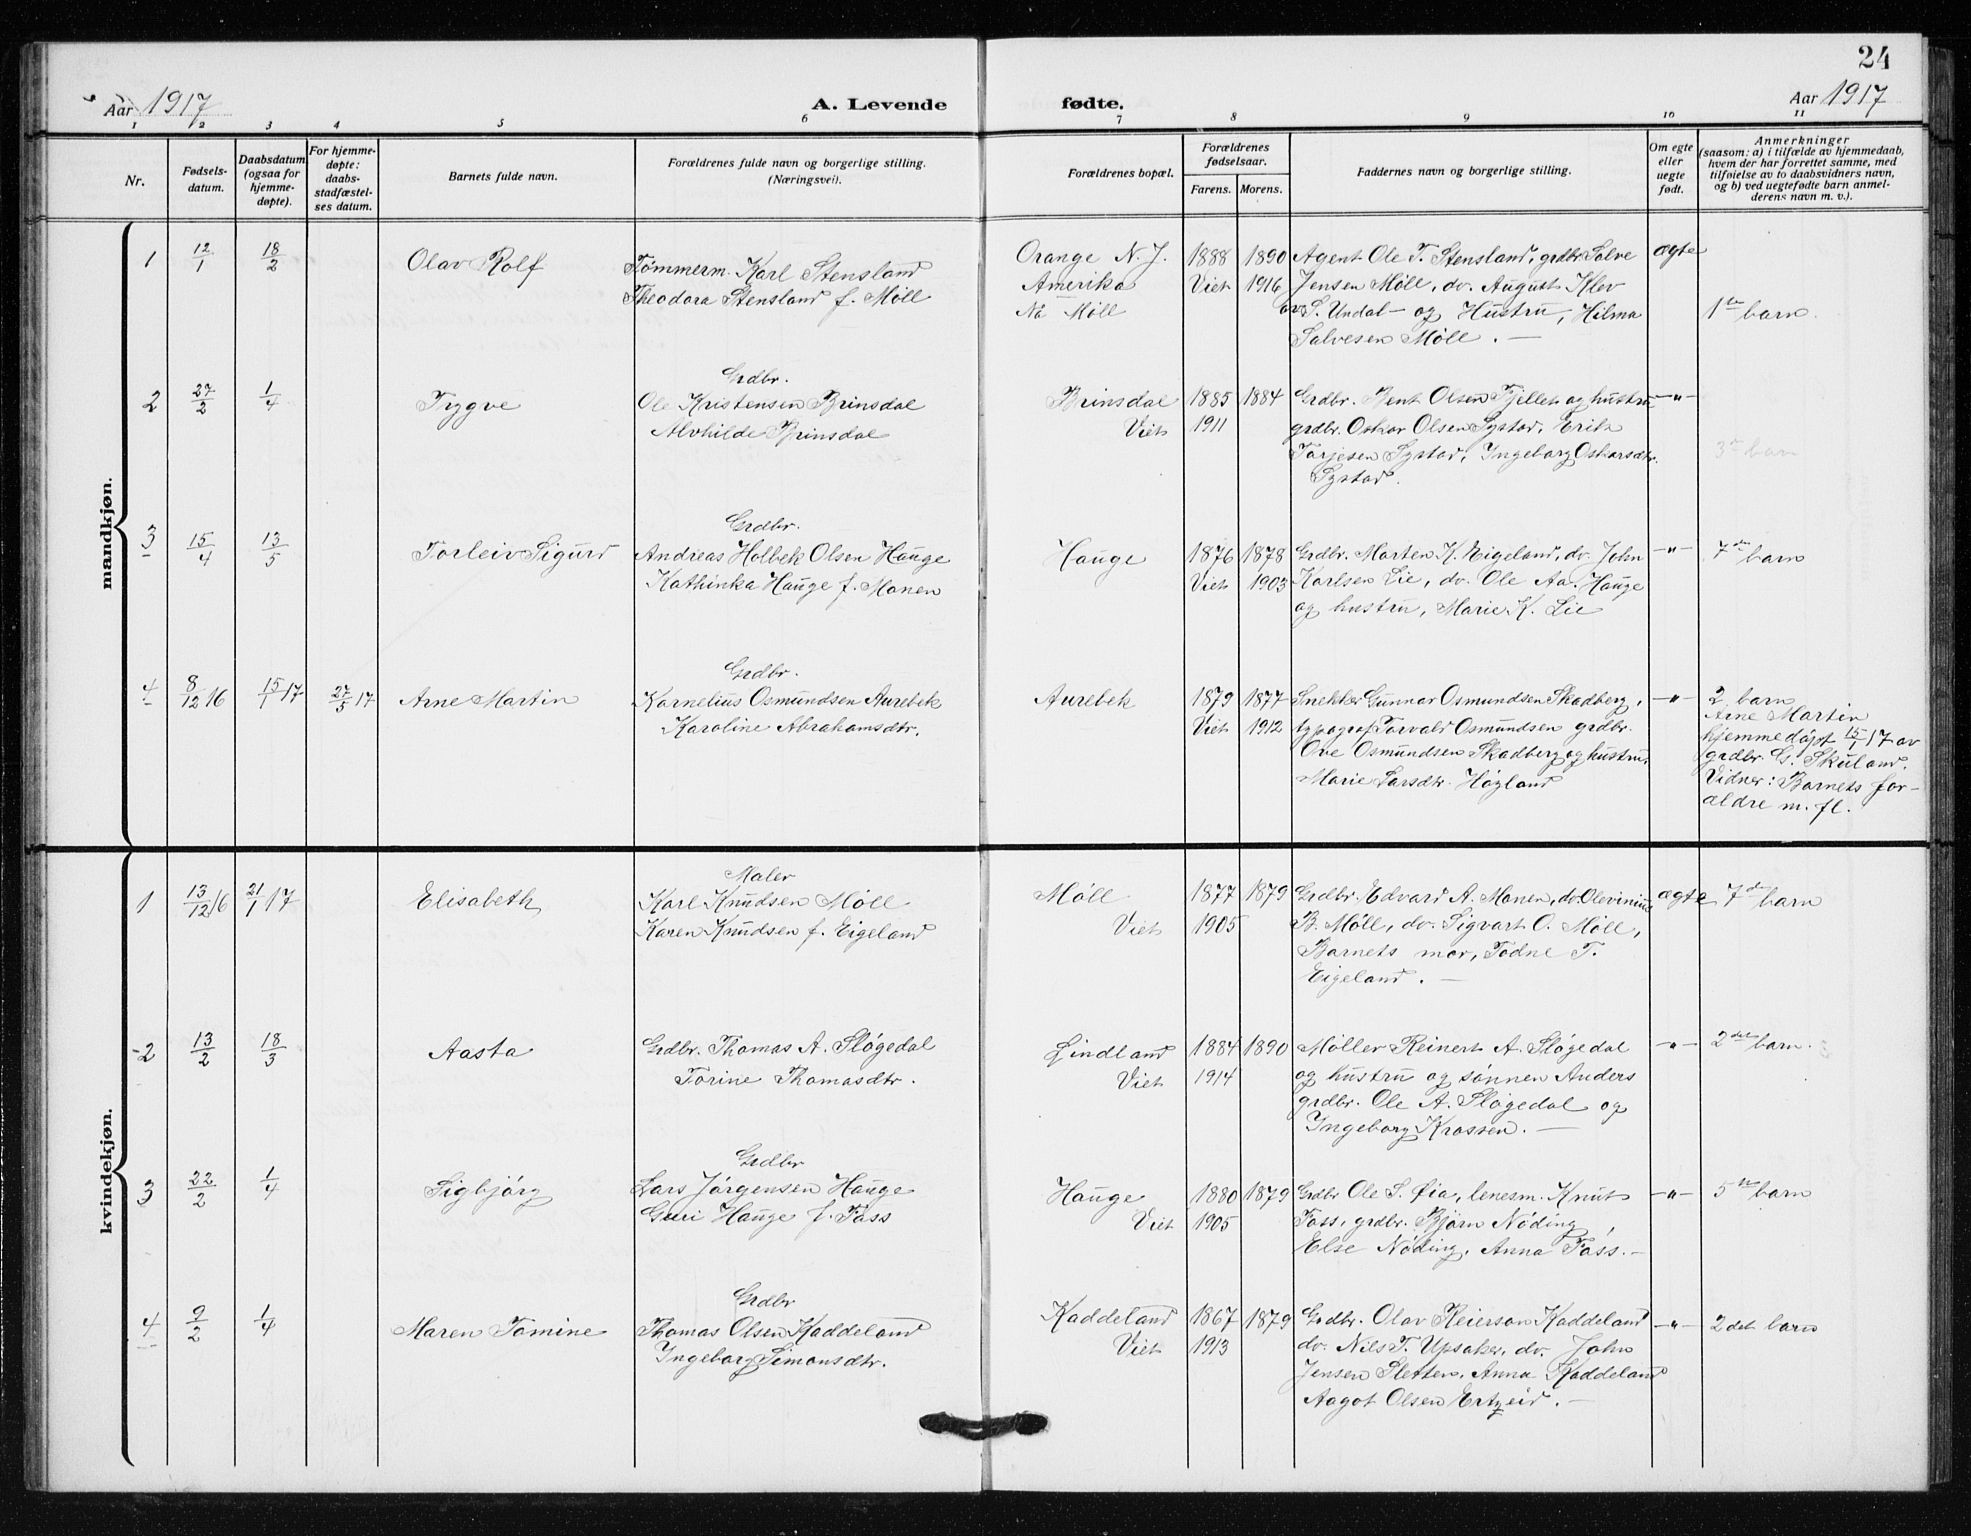 24
Aar 1917
A. Levende
fødte.
Aar 1917
1 2 3 4 5 6 7 8 9 10 11
Nr.
Fødsels-
datum.
Daabsdatum
(ogsaa for
hjemme-
døpte).
For hjemme-
døpte:
daabs-
stadfæstel-
ses datum.
Barnets fulde navn.
Forældrenes fulde navn og borgerlige stilling.
(Næringsvei).
Forældrenes bopæl.
Forældrenes
fødselsaar.
Farens. Morens.
Faddernes navn og borgerlige stilling.
Om egte
eller
uegte
født.
Anmerkninger
(saasom: a) i tilfælde av hjemmedaab,
hvem der har forrettet samme, med
tilføielse av to daabsvidners navn,
og b) ved uegtefødte barn anmel-
derens navn m. v.).
mandkjøn.
1 12/1 18/2 Olav Rolf
Tømmerm. Karl Stensland
Theodora Stensland f. Møll
Orange N. J.
Amerika
Nå Møll
1888 1890
Viet 1916
Agent Ole T. Stensland, grdbr Salve
Jensen Møll, do. August Klev
av S. Undal - og Hustru, Hilma
Salvesen Møll. —
ægte
1ste barn.
2 27/2 1/4 Trygve
Grdbr.
Ole Kristensen Brinsdal
Alvhilde Brinsdal
Brinsdal
Viet
1885 1884
1911
Grdbr. Bent Olsen Fjellet og hustru
grdbr. Oskar Olsen Systad, Erik
Tarjesen Systad, Ingeborg Oskarsdtr.
Systad.
—"—
3die barn
3 15/4 13/5 Torleiv Sigurd
Grdbr.
Andreas Holbek Olsen Hauge
Kathinka Hauge f. Manen
Hauge
1876 1878
Viet 1903
Grdbr. Marten K. Eigeland, do. John
Karlsen Lie, do. Ole Aa. Hauge
og hustru, Marie K. Lie
—"—
7de barn
4 8/12 16 15/1 17 27/5 17 Arne Martin
Grdbr.
Kornelius Osmundsen Aurebek
Karoline Abrahamsdtr.
Aurebek
1879 1877
Viet 1912
Snekker Gunnar Osmundsen Skadberg,
typograf Torvald Osmundsen grdbr.
Ove Osmundsen Skadberg og hustru,
Marie Larsdtr. Høyland
—"—
2 barn
Arne Martin
hjemmedøpt 15/1 17 av
grdbr. G. Skuland.
Vidner: Barnets for-
ældre m. fl.
kvindekjøn.
1 13/12 16 21/1 17 Elisabeth
Maler
Karl Knudsen Møll
Karen Knudsen f. Eigeland
Møll
Viet
1877 1879
1905
Grdbr. Edvard A. Manen, do Olevinius
B. Møll, do. Sigvart O. Møll,
Barnets mor, Todne T.
Eigeland. —
ægte
7de barn
2 13/2 18/3 Aasta
Grdbr. Thomas A. Sløgedal
Torine Thomasdtr.
Lindland
Viet
1884 1890
1914
Møller Reinert A. Sløgedal
og hustru og sønnen Anders
grdbr. Ole A. Sløgedal og
Ingeborg Krossen. —
—"—
2det barn.
3 22/2 1/4 Sigbjørg
Grdbr
Lars Jørgensen Hauge
Guri Hauge f. Foss
Hauge
Viet
1880 1879
1905
Grdbr Ole S. Øia, lensm. Knut
Foss, grdbr. Bjørn Nøding,
Else Nøding, Anna Foss. —
—"—
5te barn
4 9/2 1/4 Maren Tomine
Grdbr
Thomas Olsen Kaddeland
Ingeborg Simonsdtr.
Kaddeland
Viet
1867 1879
1913
Grdbr. Olav Reierson Kaddeland
do. Nils T. Upsaker, do. John
Jensen Sletten, Anna Kaddeland
Aagot Olsen Ertzeid. —
—"—
2det barn